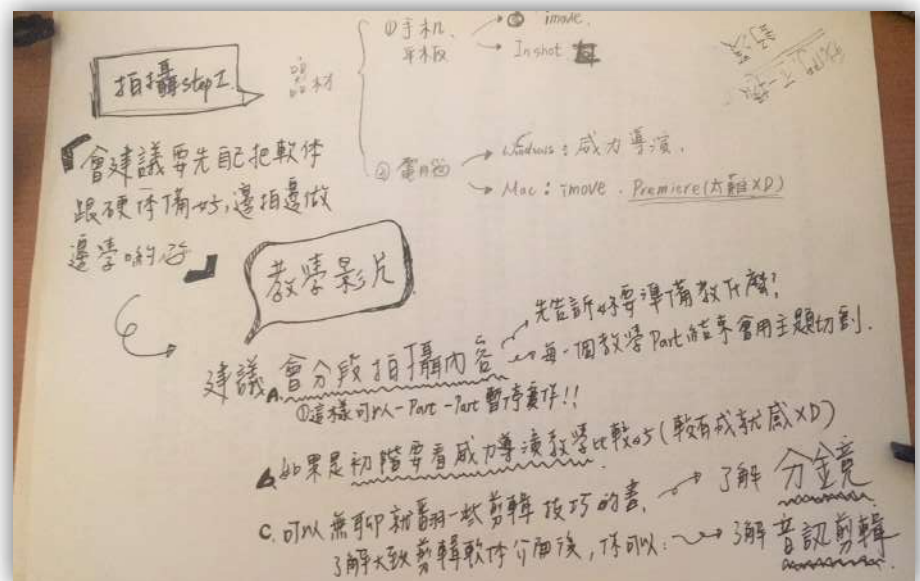 拍攝step1.
器材
①手机、
平板
imove.
Inshot
②電腦
Windows：威力導演.
Mac：imove. Premiere(太難XD)
「會建議要先自己把軟体
跟硬体備好,邊拍邊做
邊學喲」
教學影片
建議
A.會分段拍攝內容
先告訴妳要準備教什麼?
每一個教學Part結束會用主題切割.
①這樣可以一Part一Part暫停實作!!
如果是初階要看威力導演教學比較好(較有成就感XD)
C.可以無聊就翻一些剪輯技巧的書.
了解 分鏡
了解大致剪輯軟体介面後,你可以:
了解 音訊剪輯